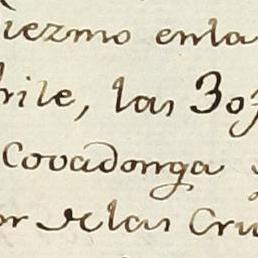 iezmo enla
hile, las 303
Covadonga
or de las Cru